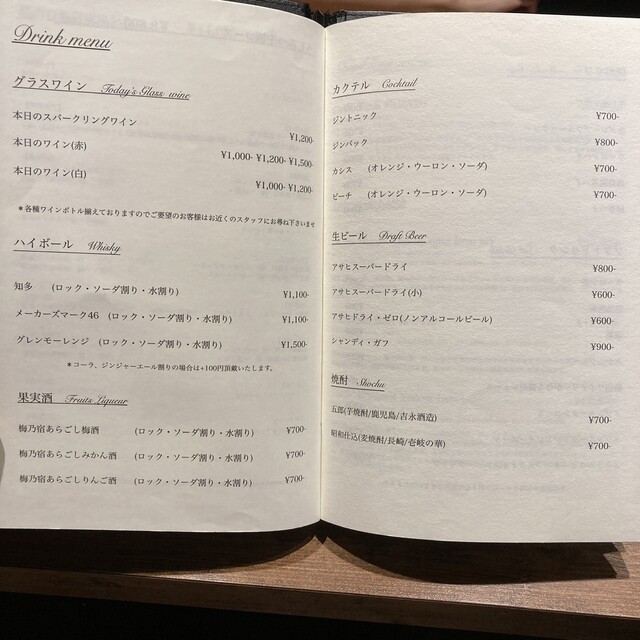 Drink menu
グラスワイン Today's Glass wine
本日のスパークリングワイン ¥1,200-
本日のワイン(赤) ¥1,000- ¥1,200- ¥1,500-
本日のワイン(白) ¥1,000- ¥1,200-
＊各種ワインボトル揃えておりますのでご要望のお客様はお近くのスタッフにお尋ね下さいませ
ハイボール Whisky
知多 (ロック・ソーダ割り・水割り) ¥1,100-
メーカーズマーク46 (ロック・ソーダ割り・水割り) ¥1,100-
グレンモーレンジ (ロック・ソーダ割り・水割り) ¥1,500-
＊コーラ、ジンジャーエール割りの場合は+100円頂戴いたします。
果実酒 Fruits Liqueur
梅乃宿あらごし梅酒 (ロック・ソーダ割り・水割り) ¥700-
梅乃宿あらごしみかん酒 (ロック・ソーダ割り・水割り) ¥700-
梅乃宿あらごしりんご酒 (ロック・ソーダ割り・水割り) ¥700-
カクテル Cocktail
ジントニック ¥700-
ジンバック ¥800-
カシス (オレンジ・ウーロン・ソーダ) ¥700-
ピーチ (オレンジ・ウーロン・ソーダ) ¥700-
生ビール Draft Beer
アサヒスーパードライ ¥800-
アサヒスーパードライ(小) ¥600-
アサヒドライ・ゼロ(ノンアルコールビール) ¥600-
シャンディ・ガフ ¥900-
焼酎 Shochu
五郎(芋焼酎/鹿児島/吉永酒造) ¥700-
昭和仕込(麦焼酎/長崎/壱岐の華) ¥700-